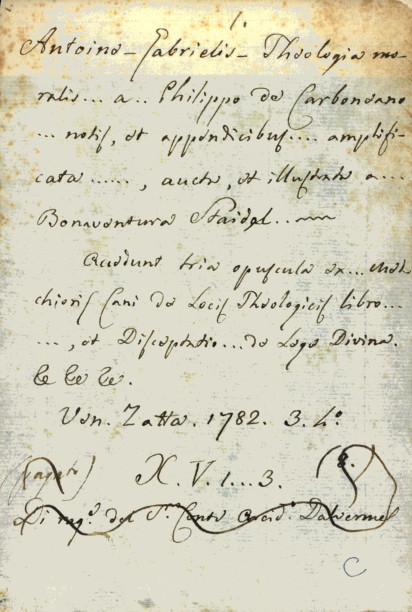 1.
Antoine - Gabrielis - Theologia mo-
ralis... a.. Philippo de Carboneano
... notis, et appendicibus.... amplifi-
cata ....., aucta, et illustrata a...
Bonaventura Staidel...
Accedunt tria opuscula ex... Mel
chioris Cani de Locis Theologicis libro...
..., et Disceptatio... de Lege Divina.
&c &c &c.
Ven. Zatta. 1782. 3. 4.º
(pagato) X. V. 1...3. (8.
Di rag.e del S.r Conte Dalverme
C